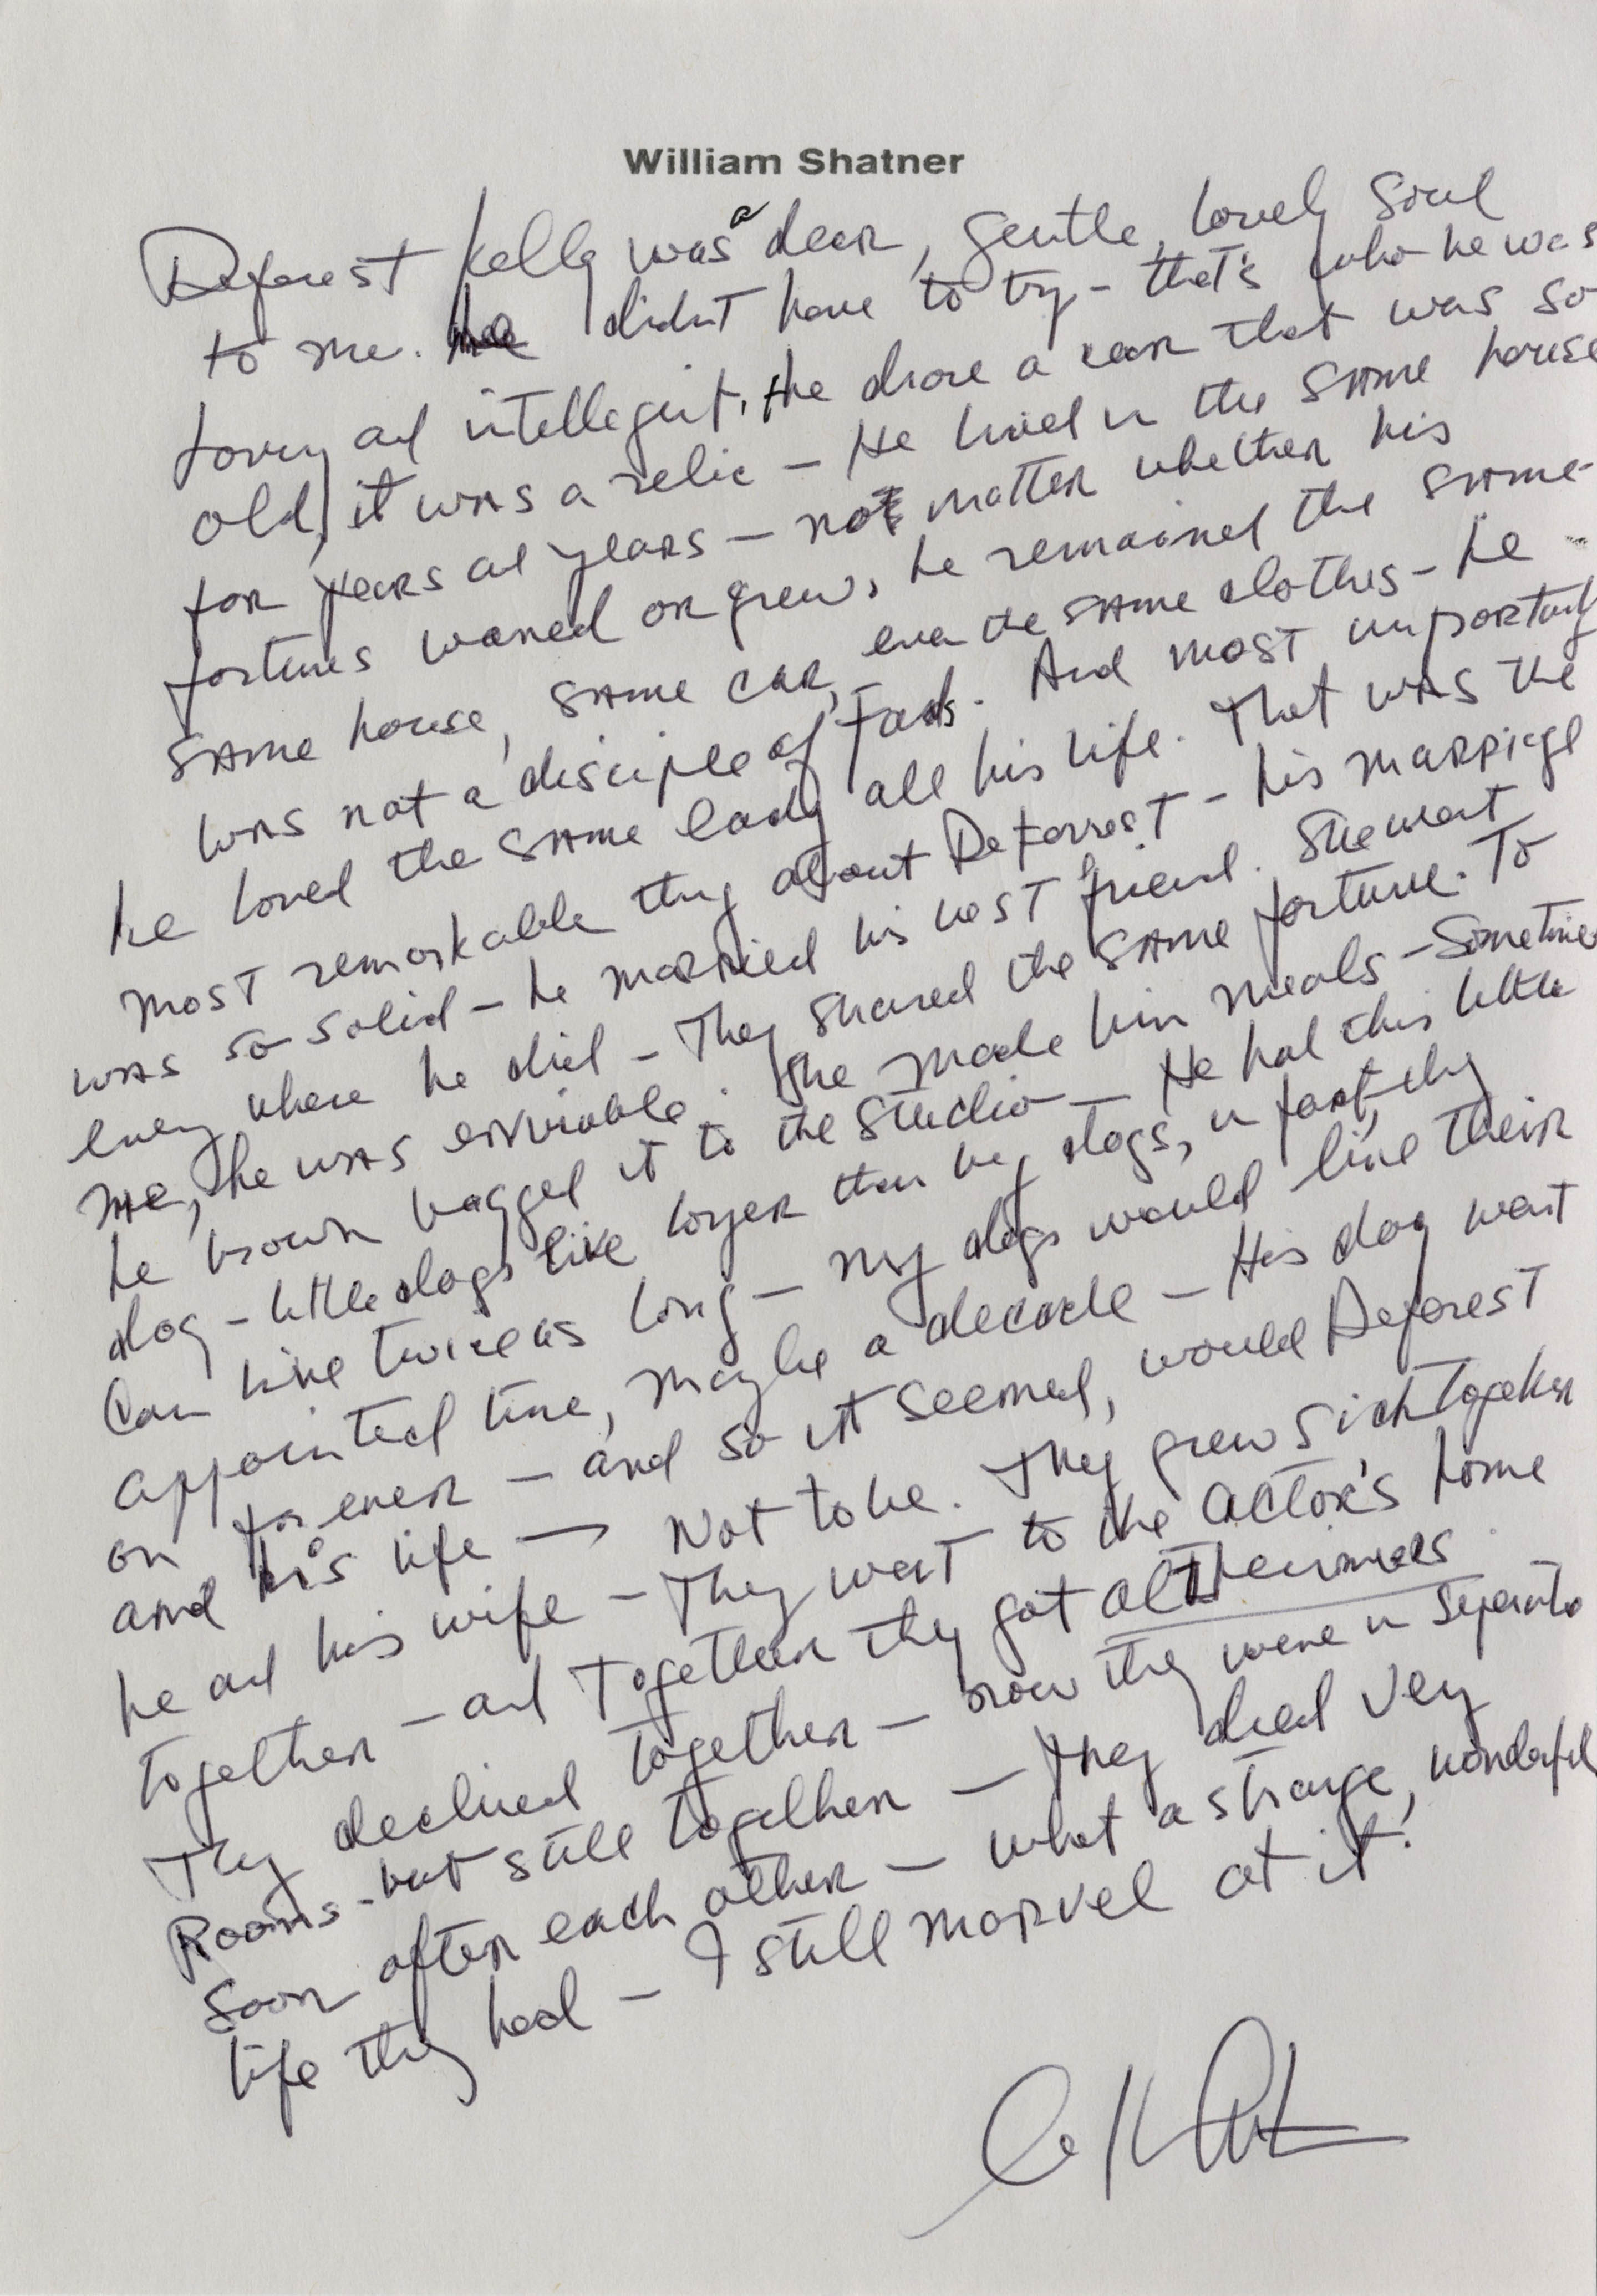 William Shatner
Deforest Kelly was a dear, gentle, lovely soul
to me. he didn't have to try - that's who he was
loving and intellegent, He drove a car that was so
old, it was a relic - He lived in the SAME house
for years and years - not matter whether his
fortunes waned or grew, he remained the same -
SAME house, SAME CAR, even the SAME clothes - he
was not a disciple of fads. And most importantly
he loved the SAME lady all his life. That was the
most remarkable thing about DeForrest - his marriage
was so solid - he married his best friend. She went
every where he did - They shared the SAME fortune. To
me, he was enviable. She made him meals - Sometimes
he brown bagged it to the studio - He had this little
dog - little dogs live longer than big dogs, in fact, they
Can live twice as long - my dogs would live their
appointed time, maybe a decade - His dog went
on for ever - and so it seemed, would Deforest
and his life - Not to be. They grew sick together
he and his wife - They went to the actor's home
together - and Together they got altheimers
They declined together - now they were in separate
Rooms - but still together - They died very
soon after each other - what a strange, wonderful
life they had - I still marvel at it!